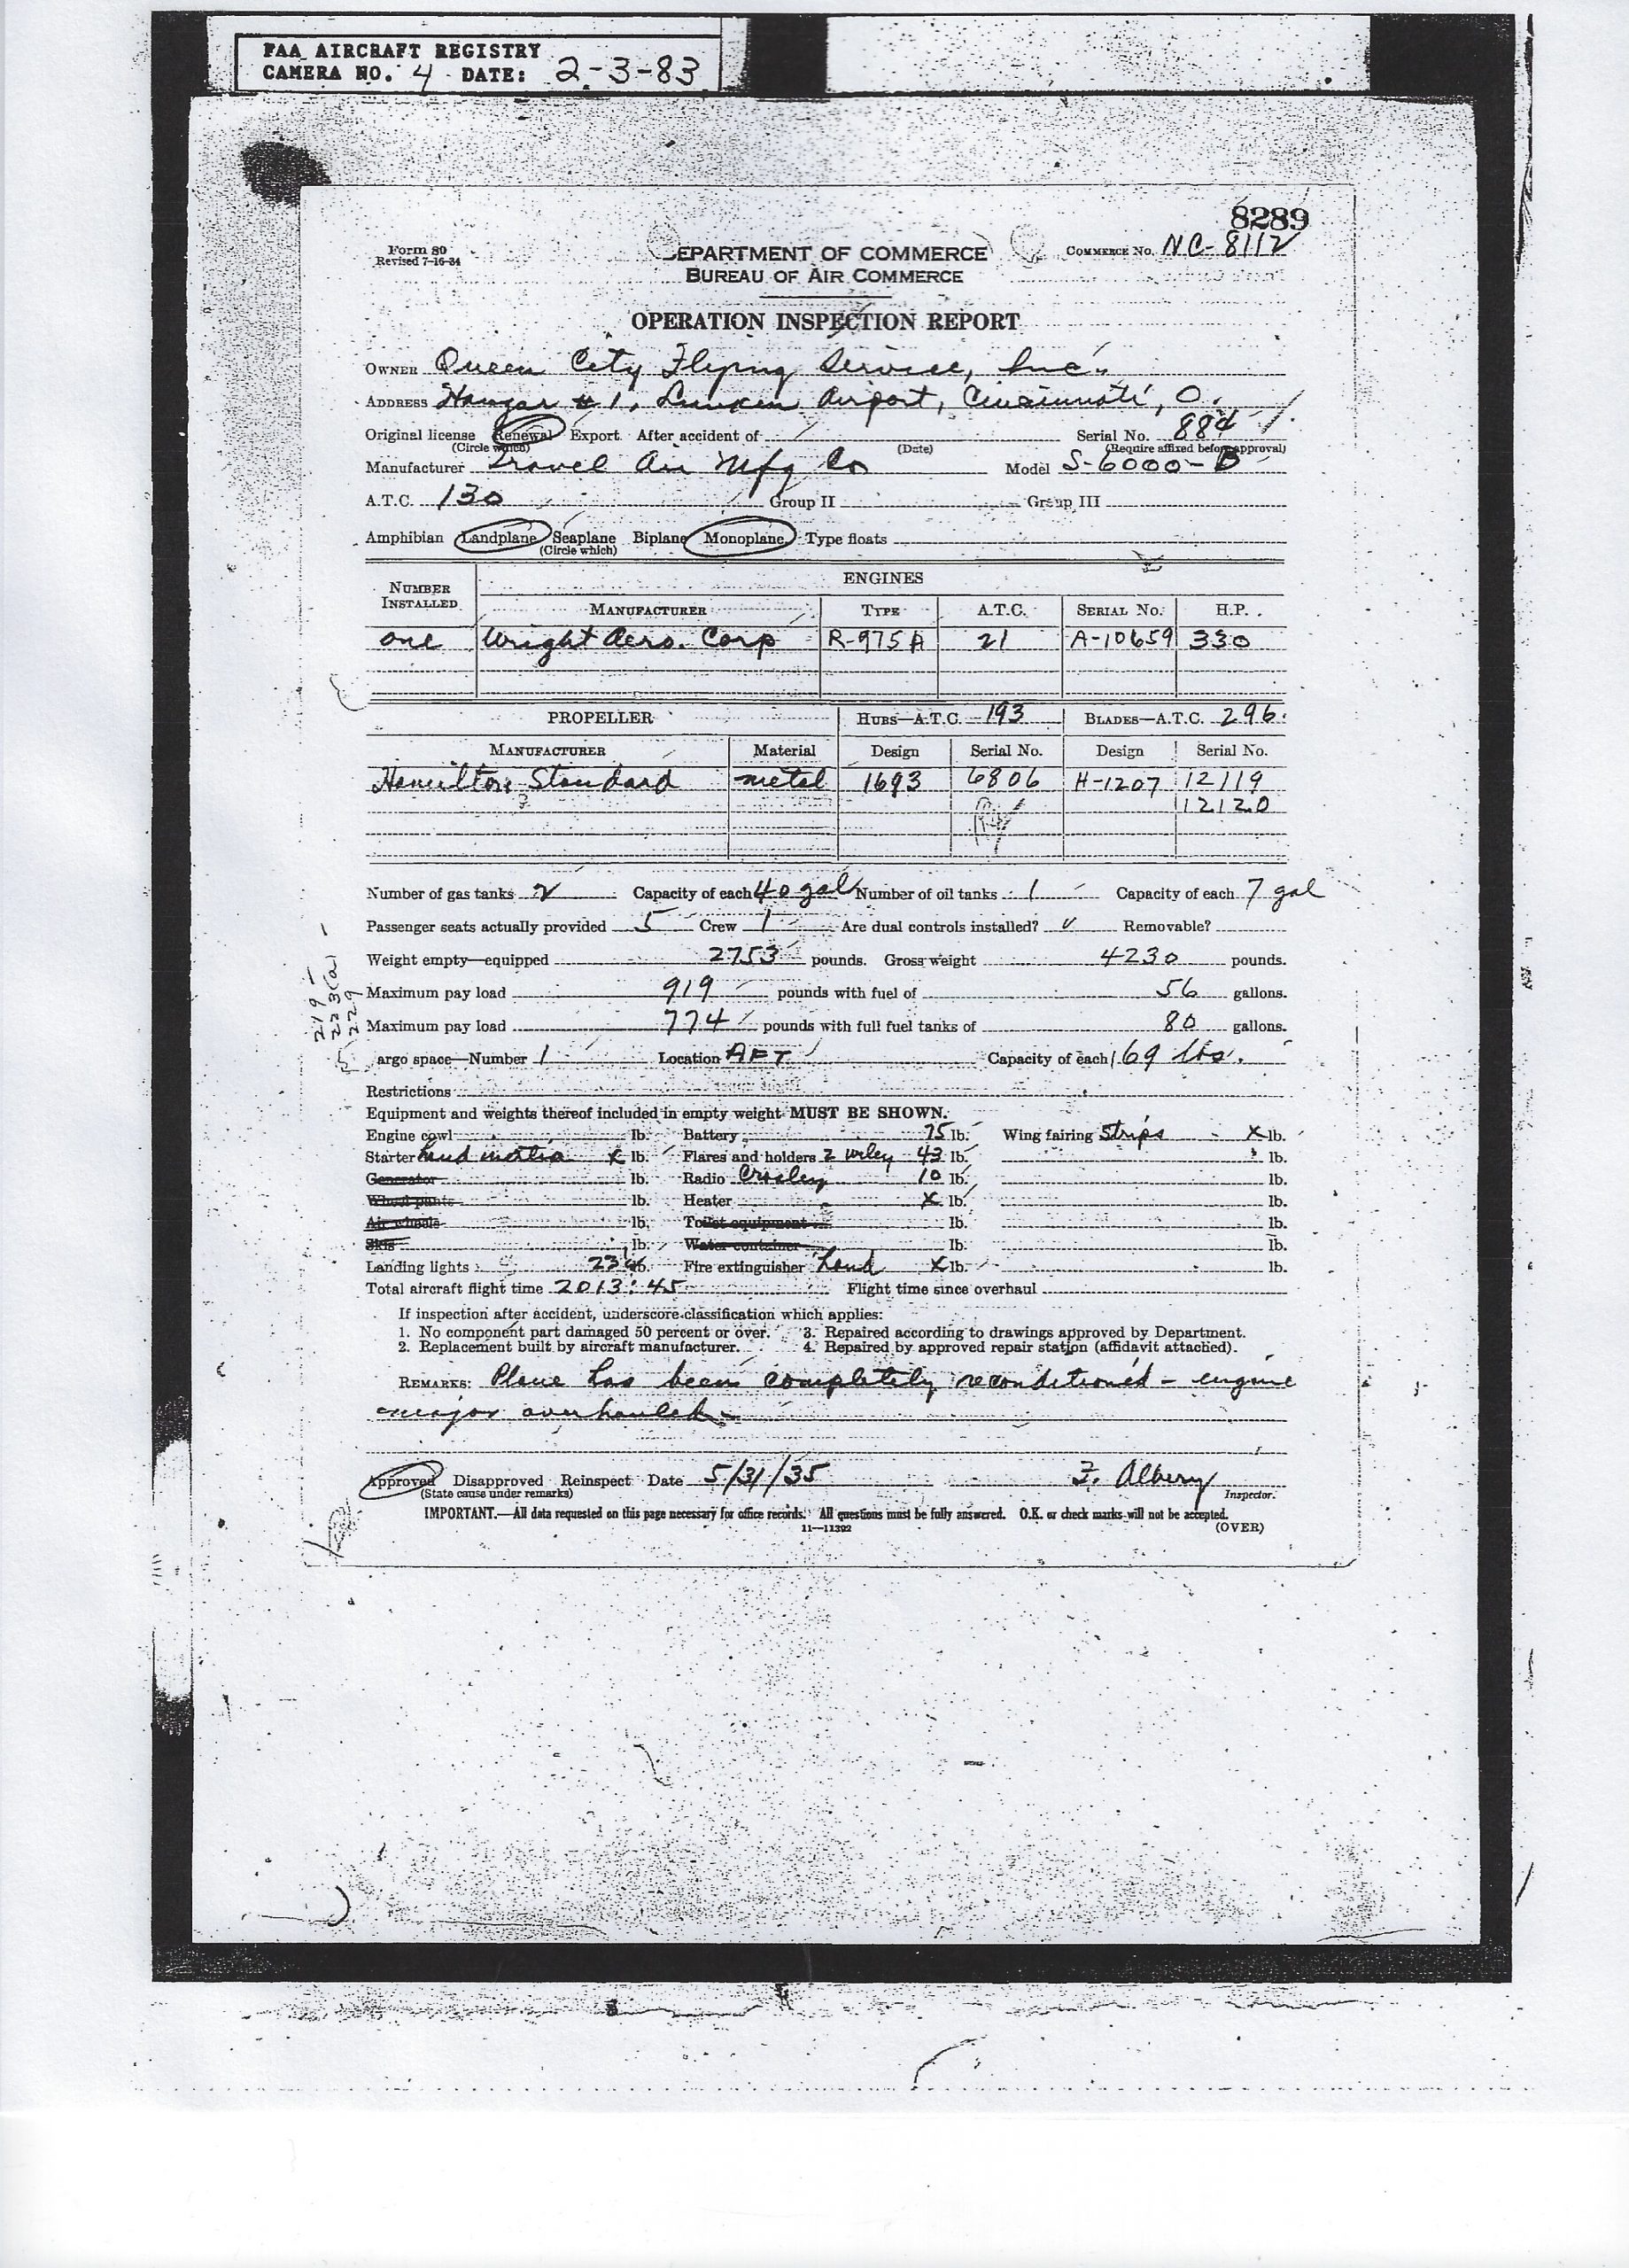 FAA AIRCRAFT REGISTRY
CAMERA NO. 4 DATE: 2-3-83
8289
Form 80
Revised 7-16-34
EPARTMENT OF COMMERCE
BUREAU OF AIR COMMERCE
COMMERCE NO. NC-8112
OPERATION INSPECTION REPORT
OWNER Queen City Flying Service, Inc.
ADDRESS Hangar #1, Lunken Airport, Cincinnati, O.
Original license Renewal Export After accident of Serial No. 884
(Circle which) (Date) (Require affixed before approval)
Manufacturer Travel Air Mfg Co Model S-6000-B
A.T.C. 130 Group II Group III
Amphibian Landplane Seaplane Biplane Monoplane Type floats
(Circle which)
NUMBER INSTALLED ENGINES
MANUFACTURER TYPE A.T.C. SERIAL NO. H.P.
one Wright Aero. Corp R-975A 21 A-10659 330
PROPELLER HUBS—A.T.C. 193 BLADES—A.T.C. 296.
MANUFACTURER Material Design Serial No. Design Serial No.
Hamilton Standard metal 1693 6806 H-1207 12119
12120
Number of gas tanks 2 Capacity of each 40 gal Number of oil tanks 1 Capacity of each 7 gal
Passenger seats actually provided 5 Crew 1 Are dual controls installed? Removable?
Weight empty—equipped 2753 pounds. Gross weight 4230 pounds.
Maximum pay load 919 pounds with fuel of 56 gallons.
Maximum pay load 774 pounds with full fuel tanks of 80 gallons.
219
223(a)
229
argo space—Number 1 Location AFT Capacity of each 69 lbs.
Restrictions
Equipment and weights thereof included in empty weight MUST BE SHOWN.
Engine cowl lb. Battery 75 lb. Wing fairing strips X lb.
Starter hand inertia X lb. Flares and holders 2 wiley 43 lb. lb.
Generator lb. Radio Crosley 10 lb. lb.
Wheel pants lb. Heater X lb. lb.
Air wheels lb. Toilet equipment lb. lb.
Skis lb. Water container lb. lb.
Landing lights 23 lb. Fire extinguisher hand X lb. lb.
Total aircraft flight time 2013:45 Flight time since overhaul
If inspection after accident, underscore classification which applies:
1. No component part damaged 50 percent or over. 3. Repaired according to drawings approved by Department.
2. Replacement built by aircraft manufacturer. 4. Repaired by approved repair station (affidavit attached).
REMARKS: Plane has been completely reconditioned - engine
major overhauled.
Approved Disapproved Reinspect Date 5/31/35 F. Albery
(State cause under remarks) Inspector.
IMPORTANT.—All data requested on this page necessary for office records. All questions must be fully answered. O.K. or check marks will not be accepted.
11—11392 (OVER)